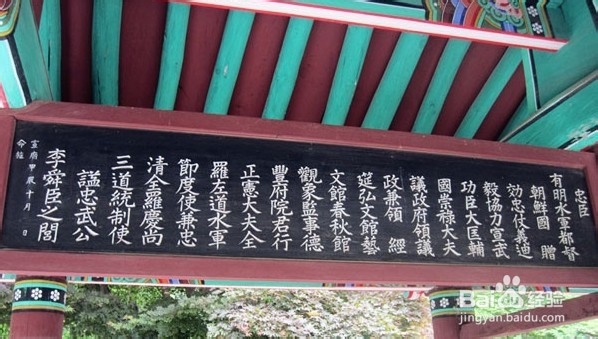 忠臣
有明水軍都督
朝鮮國 贈
効忠仗義迪
毅協力宣武
功臣大匡輔
國崇祿大夫
議政府領議
政兼領 經
筵弘文館藝
文館春秋館
觀象監事德
豐府院君行
正憲大夫全
羅左道水軍
節度使兼忠
清全羅慶尚
三道統制使
諡忠武公
李舜臣之閭
十月 日
命旌
Baidu 经验
jingyan.baidu.com